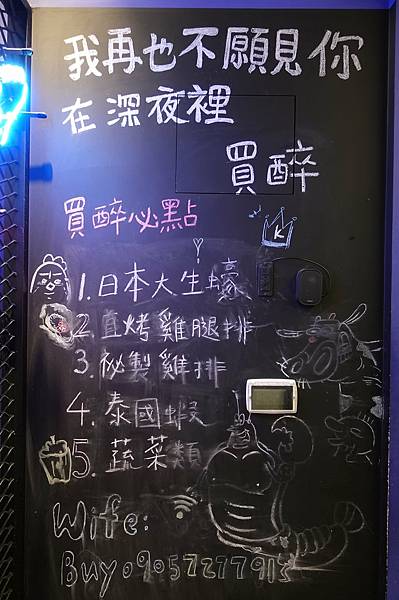 我再也不願見你
在深夜裡
買醉
買醉必點
K
1. 日本大生蠔
2. 直烤雞腿排
3. 祕製雞排
4. 泰國蝦
5. 蔬菜類
Wife:
Buy0905727791